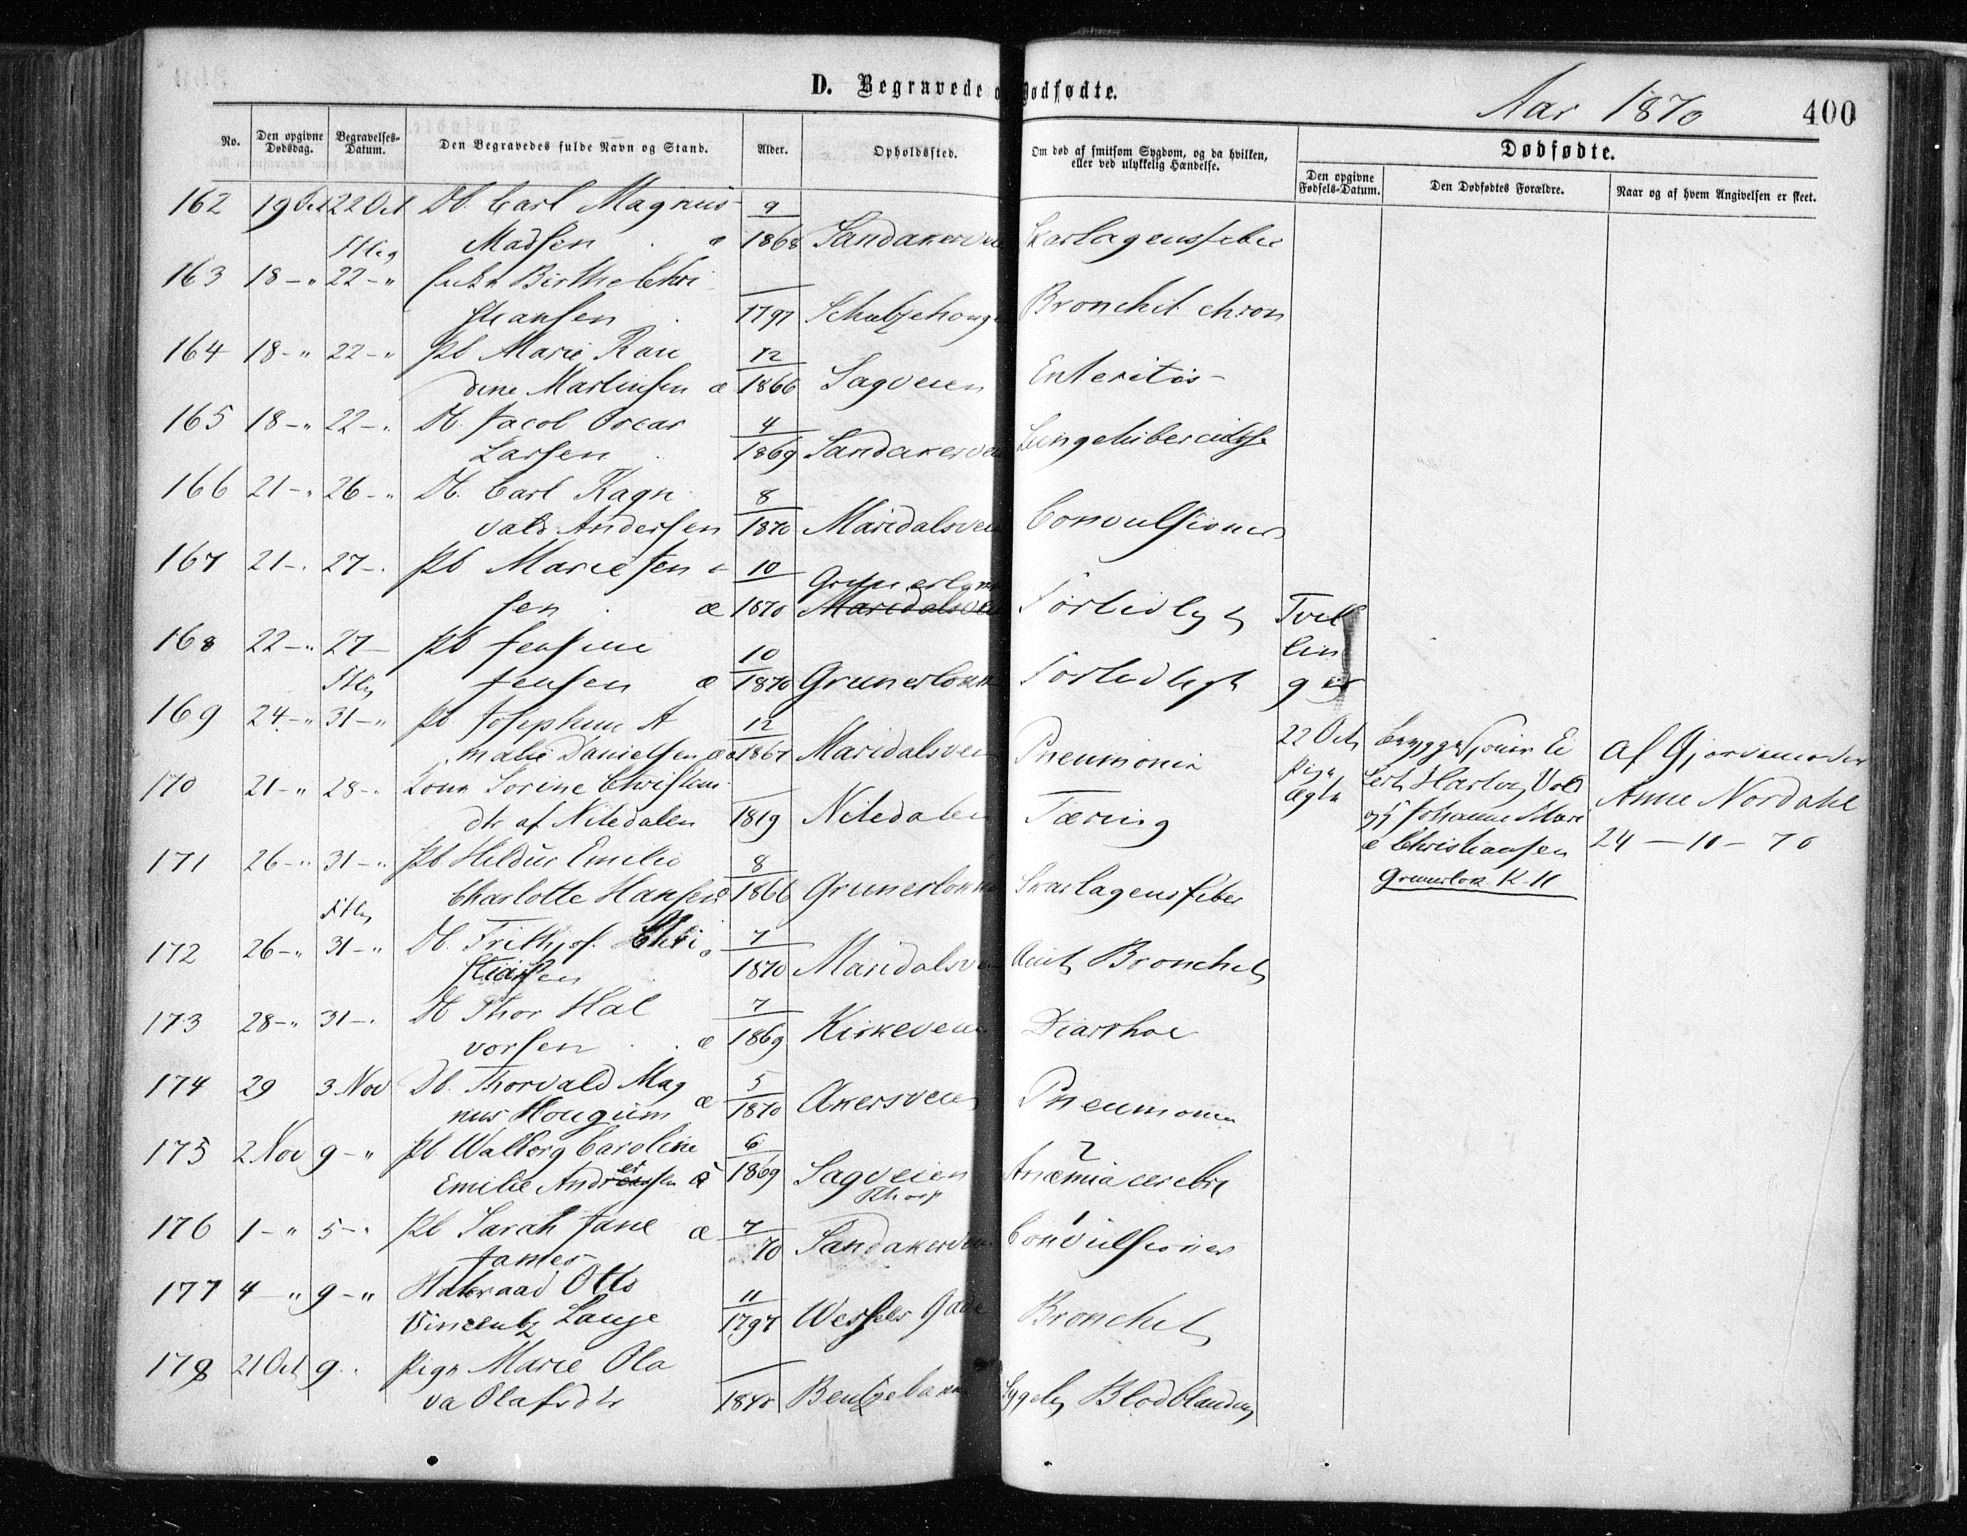 D. Begravede o Dødfødte.
Aar 1870
400
No.
Den opgivne Dødsdag.
Begravelses-Datum.
Den Begravedes fulde Navn og Stand.
Alder.
Opholdssted.
Om død af smitsom Sygdom, og da hvilken, eller ved ulykkelig Hændelse.
Dødfødte.
Den opgivne Fødsels-Datum.
Den Dødfødtes Forældre.
Naar og af hvem Angivelsen er skeet.
162 19 Oct 22 Oct Db. Carl Magnus 9
Madsen æ 1868 Sandakervei Skarlagensfeber
163 18 - " 22 - " Birthe Chri
stiansen 1797 Schultzehouge Bronchit chron
164 18 - " 22 - " Pb Marie Ran 12
dine Martinsen æ 1866 Sagveien Enteritis
165 18 - " 22 - " Db. Jacob Oscar 4
Larsen 1869 Sandakervei Lungetuberculose
166 21 - " 26 - " Db. Carl Ragn 8
vald Andersen 1870 Maridalsvei Convulsioner
167 21 - " 27 - " Pb Marie Jen 10
sen æ 1870 Maridalsvei Førtidligt Tvil
168 22 - " 27 - Pb Jensine 10 lin
Jensen æ 1870 Grunerløkk Førtidligt ger
169 24 - " 31 - " Pb Josephine A 12
malie Danielsen æ 1867 Maridalsvei Pneumonia
22 Oct
Pige
ægte
170 21 - " 28 - " Kona Sorine Christians
dtr af Nitedalen 1819 Nitedalen Tæring
og Johanne Mari
e Christiansen
Grunerløk. K-H
Af Gjordemoder
Anne Nordahl
24 - 11 - 70
171 26 - " 31 - " Pb Hildur Emilie 8
Charlotte Hansen 1866 Grunerløkke Skarlagensfeber
172 26 - " 31 - " Db. Frithjof Chri 7
stiansen 1870 Maridalsvei Acut Bronchit
173 28 - " 31 - " Db Thor Hal 7
vorsen æ 1869 Kirkeveien Diarrhoe
174 29 3 Nov Db. Thorvald Mag 5
nus Hougum æ 1870 Akersveien Pneumonia
175 2 Nov 9 - " Pb Walborg Caroline 6
Emilie Andersen 1869 Sagveien Anæmia cerebri
176 1 - " 5 - " Pb Sarah Jane æ 7
James 70 Sandakervei Convulsioner
177 4 - " 9 - " Otto 11
Vincentz Lange 1797 Wessels Gade Bronchit
178 21 Oct 9 - Pige Marie Ola
va Olafsdtr Bentzebakk Sygelig Blodblanding